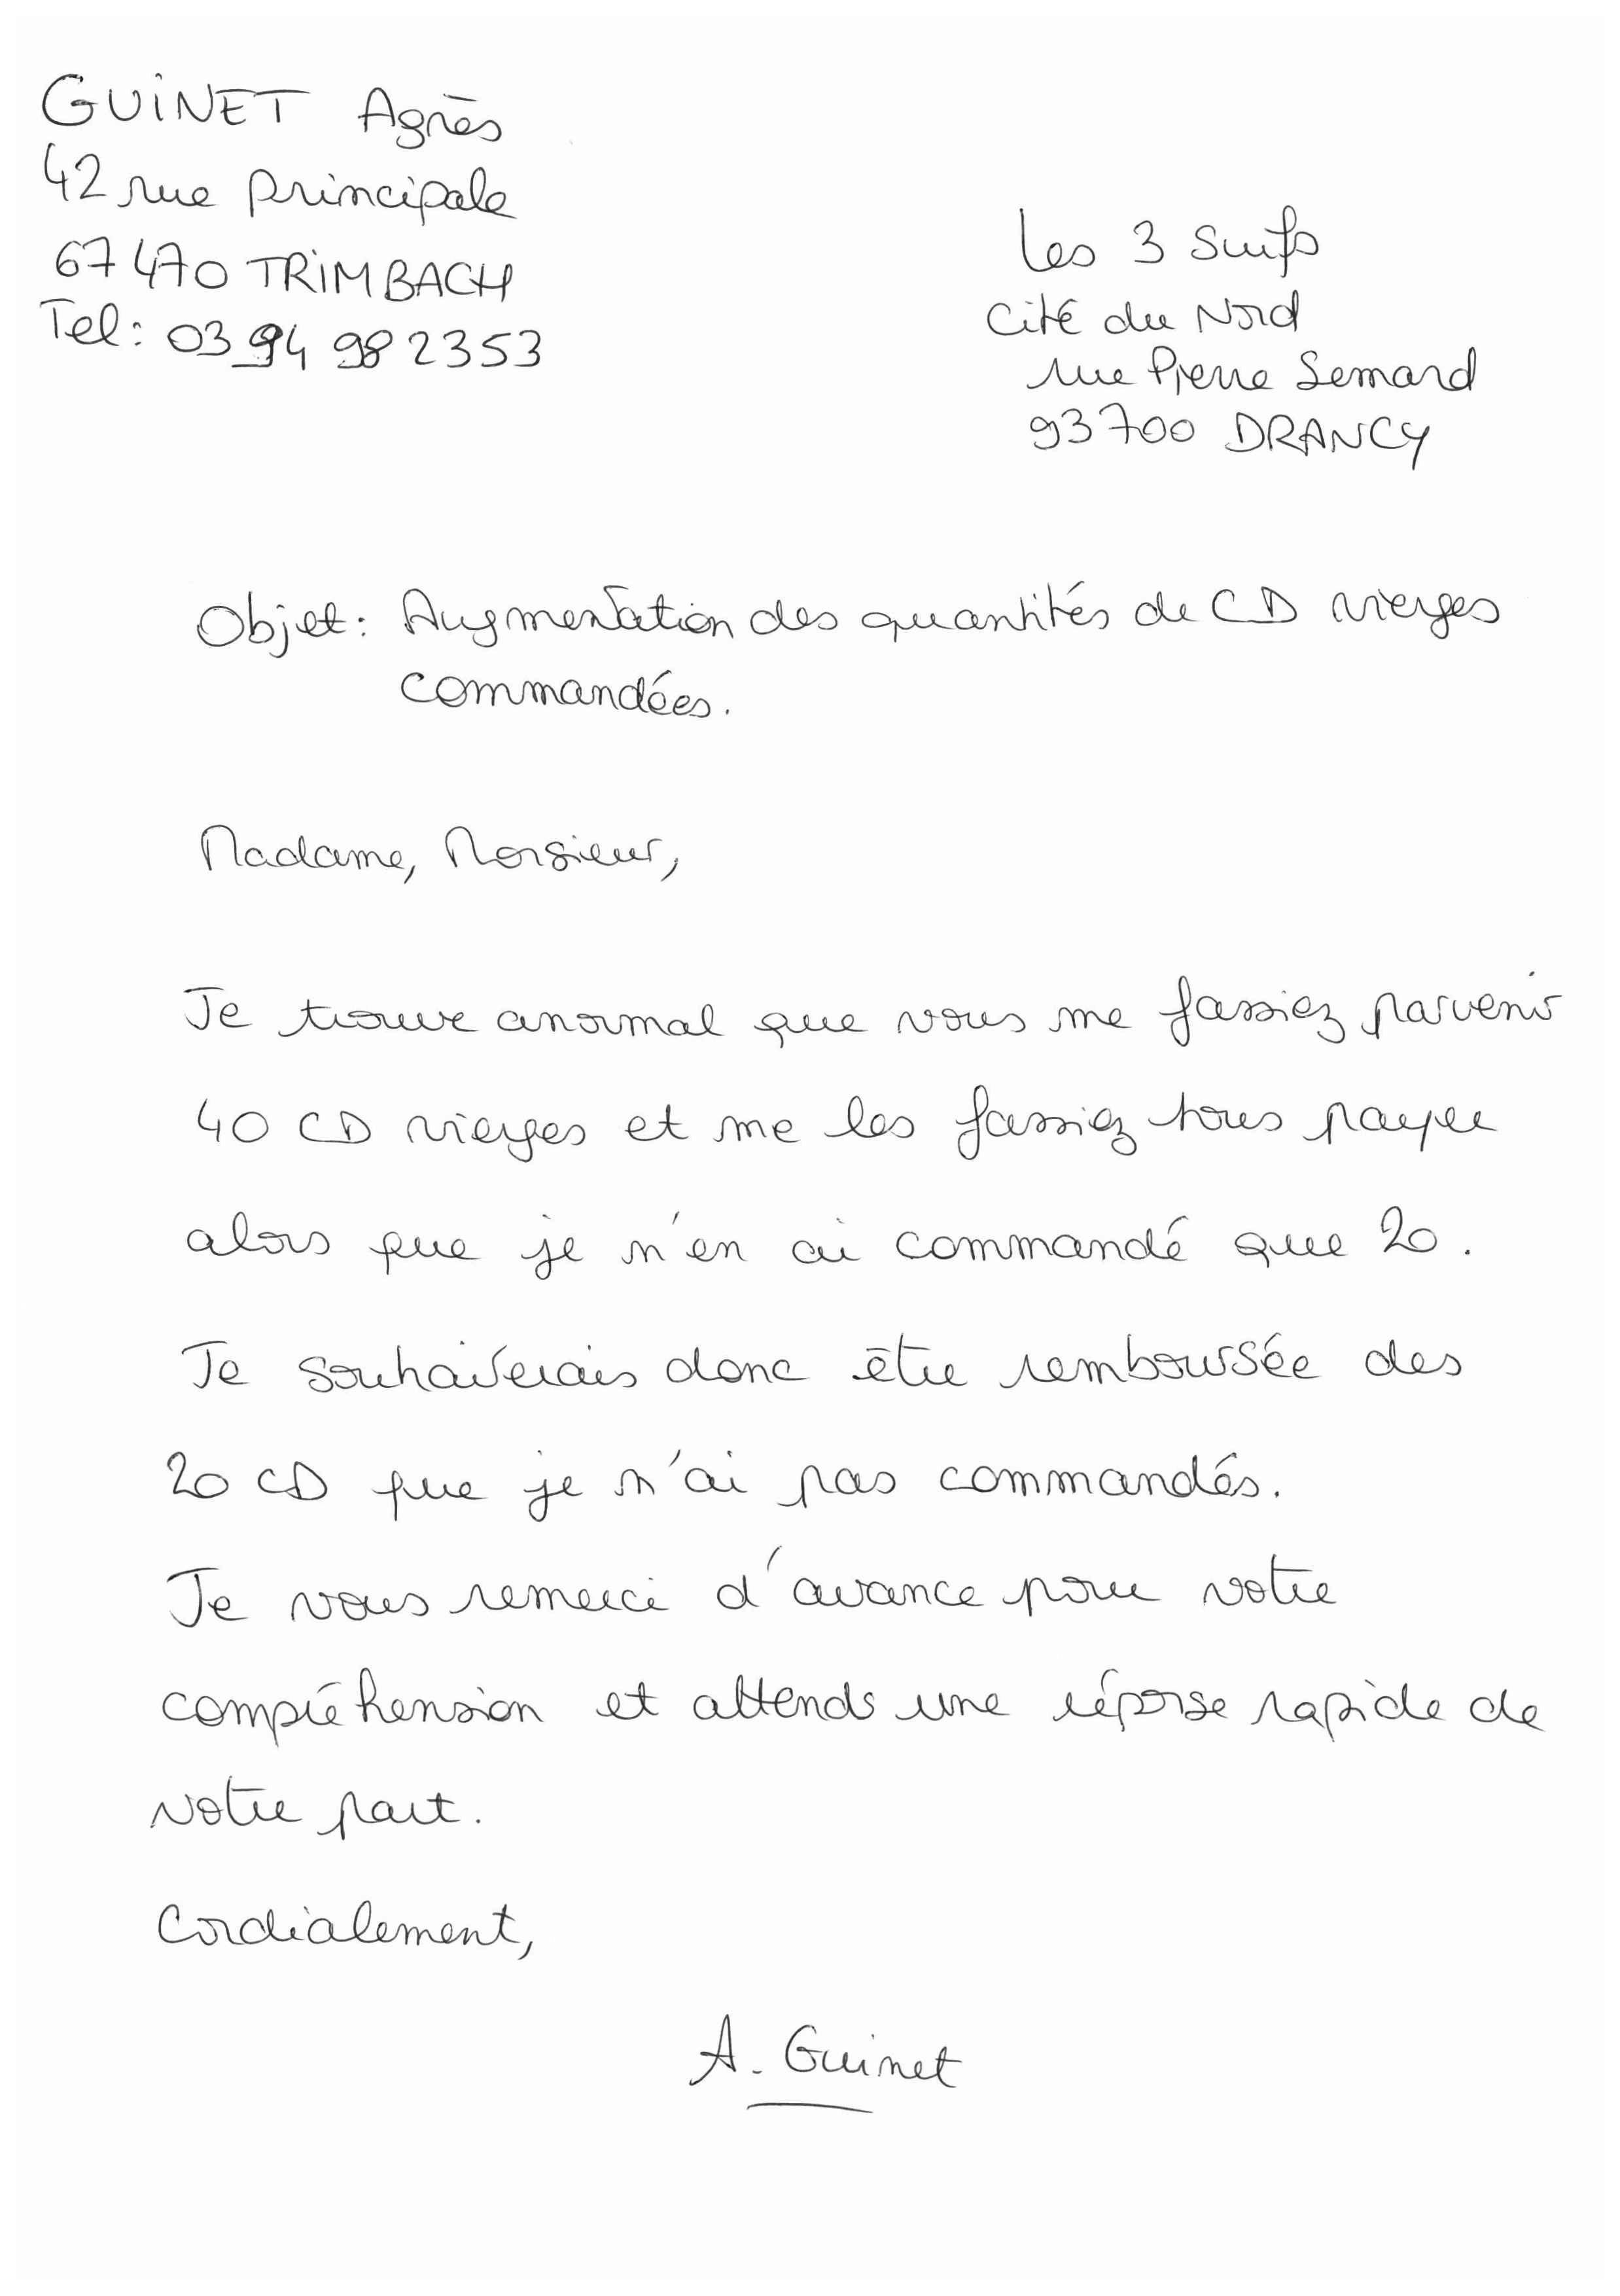 GUINET Agnès
42 rue principale
67470 TRIMBACH
Tel: 03 94 98 23 53
Les 3 Suifs
Cité du Nord
rue Pierre Semard
93700 DRANCY
Objet: Augmentation des quantités de CD vierges
commandées.
Madame, Monsieur,
Je trouve anormal que vous me fassiez parvenir
40 CD vierges et me les fassiez tous payer
alors que je n'en ai commandé que 20.
Je souhaiterais donc être remboursée des
20 CD que je n'ai pas commandés.
Je vous remerci d'avance pour votre
compréhension et attends une réponse rapide de
votre part.
Cordialement,
A. Guinet